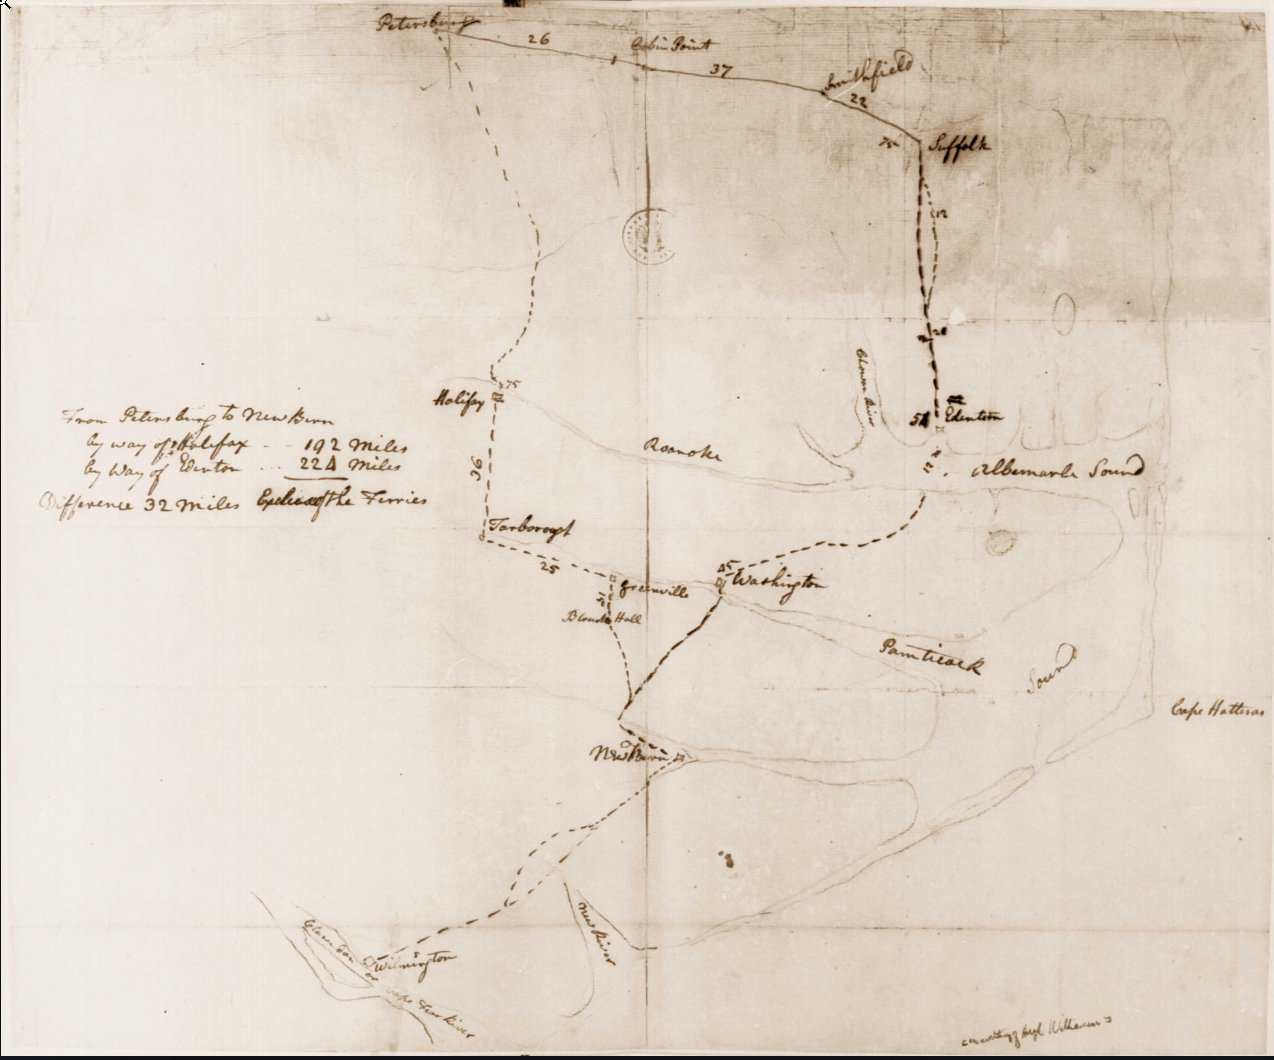 Petersburg
26
Cabin Point
37
Smithfield
22
Suffolk
12
28
Chowan River
75
Halifax
54
Edenton
From Petersburg to New Bern
by way of Halifax - - 192 Miles
by Way of Edenton ... 224 Miles
Difference 32 Miles of the Ferries
Roanoke
12
Albemarle Sound
36
Tarborough
25
Greenville
45
Washington
Blount Hall
Pamticoek
Sound
Cape Hatteras
New Bern
New River
Clarendon
or
Cape Fear River
Wilmington